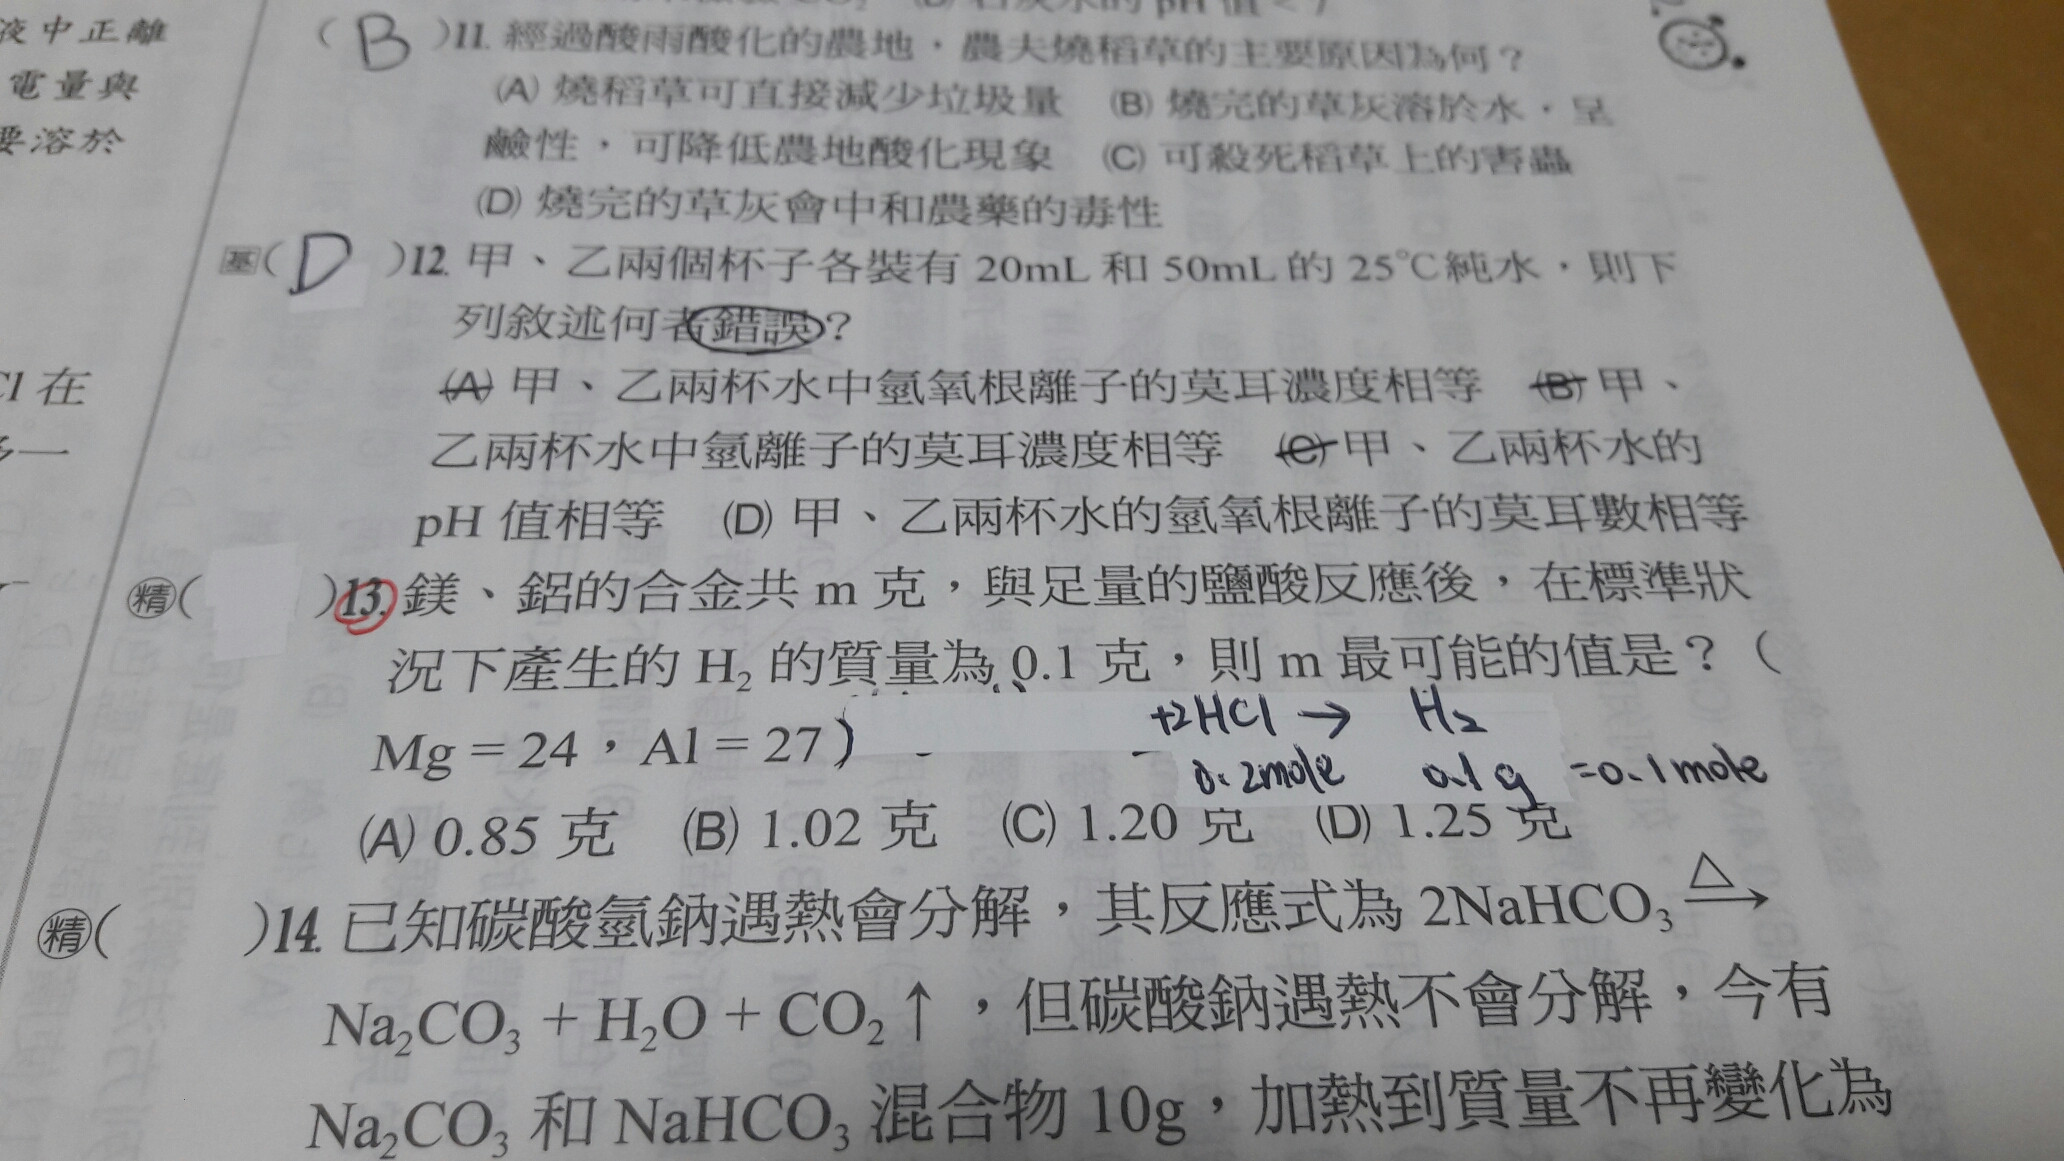 液中正離
電量與
要溶於
在
(B)11. 經過酸雨酸化的農地，農夫燒稻草的主要原因為何？
(A) 燒稻草可直接減少垃圾量 (B) 燒完的草灰溶於水，呈
鹼性，可降低農地酸化現象 (C) 可殺死稻草上的害蟲
(D) 燒完的草灰會中和農藥的毒性
基(D)12. 甲、乙兩個杯子各裝有 20mL 和 50mL 的 25℃純水，則下
列敘述何者錯誤？
(A) 甲、乙兩杯水中氫氧根離子的莫耳濃度相等 (B) 甲、
乙兩杯水中氫離子的莫耳濃度相等 (C) 甲、乙兩杯水的
pH 值相等 (D) 甲、乙兩杯水的氫氧根離子的莫耳數相等
精( )13. 鎂、鋁的合金共 m 克，與足量的鹽酸反應後，在標準狀
況下產生的 H₂ 的質量為 0.1 克，則 m 最可能的值是？（
Mg = 24，Al = 27）
+2HCl → H₂
0.2mole 0.1g =0.1mole
(A) 0.85 克 (B) 1.02 克 (C) 1.20 克 (D) 1.25 克
精( )14. 已知碳酸氫鈉遇熱會分解，其反應式為 2NaHCO₃ △→
Na₂CO₃ + H₂O + CO₂↑，但碳酸鈉遇熱不會分解，今有
Na₂CO₃ 和 NaHCO₃ 混合物 10g，加熱到質量不再變化為